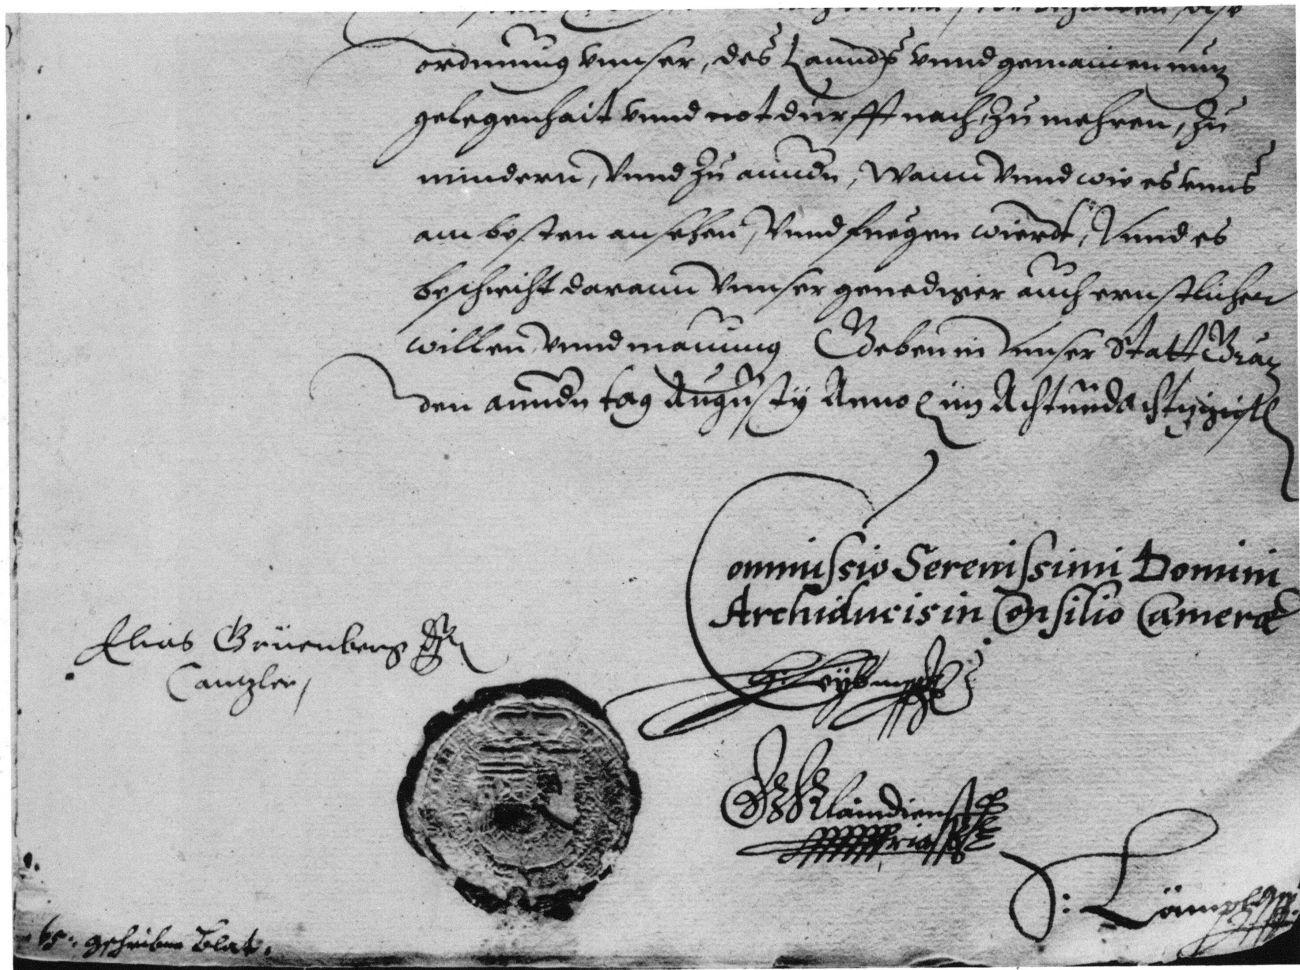 ordnung vnnser, des Lannds vnnd gemainen nuz
gelegenhait vnnd notdurfft nach, zu mehren, zu
mindern, vnnd zu annden, Wann vnnd wie es vnns
am bessten ansehen, vnnd fuegen wierdt, Vnnd es
beschicht daran Vnnser genediger auch ernstlicher
willen vnnd mainung Geben in vnnser Statt Graz
den anndn tag Augusty Anno im Achtundachtzigistn
Commissio Serenissimi Domini
Archiducis in Consilio Camerae
Elias Grüenberg
Cantzler
Klaindienst
geschriben blat.